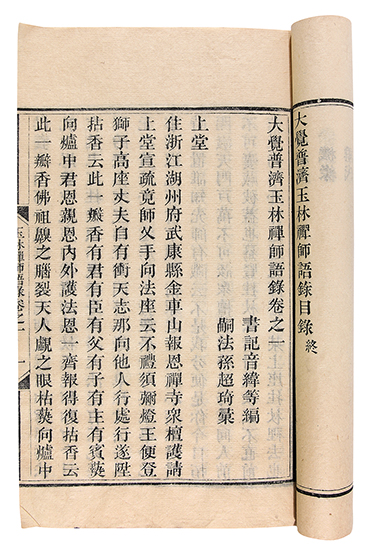 大覺普濟玉林禪師語錄目錄終
大覺普濟玉林禪師語錄卷之一
書記音緯等編
嗣法孫超琦彙
上堂
住浙江湖州府武康縣金車山報恩禪寺衆檀護請
上堂宣疏竟師叉手向法座云不禮須彌燈王便登
獅子高座丈夫自有衝天志那向他人行處行遂陞
拈香云此一瓣香有君有臣有父有子有主有賓爇
向爐中君恩親恩內外護法恩一齊報得復拈香云
此一瓣香佛祖嗅之腦裂天人覷之眼枯爇向爐中
玉林禪師語錄卷之一
一